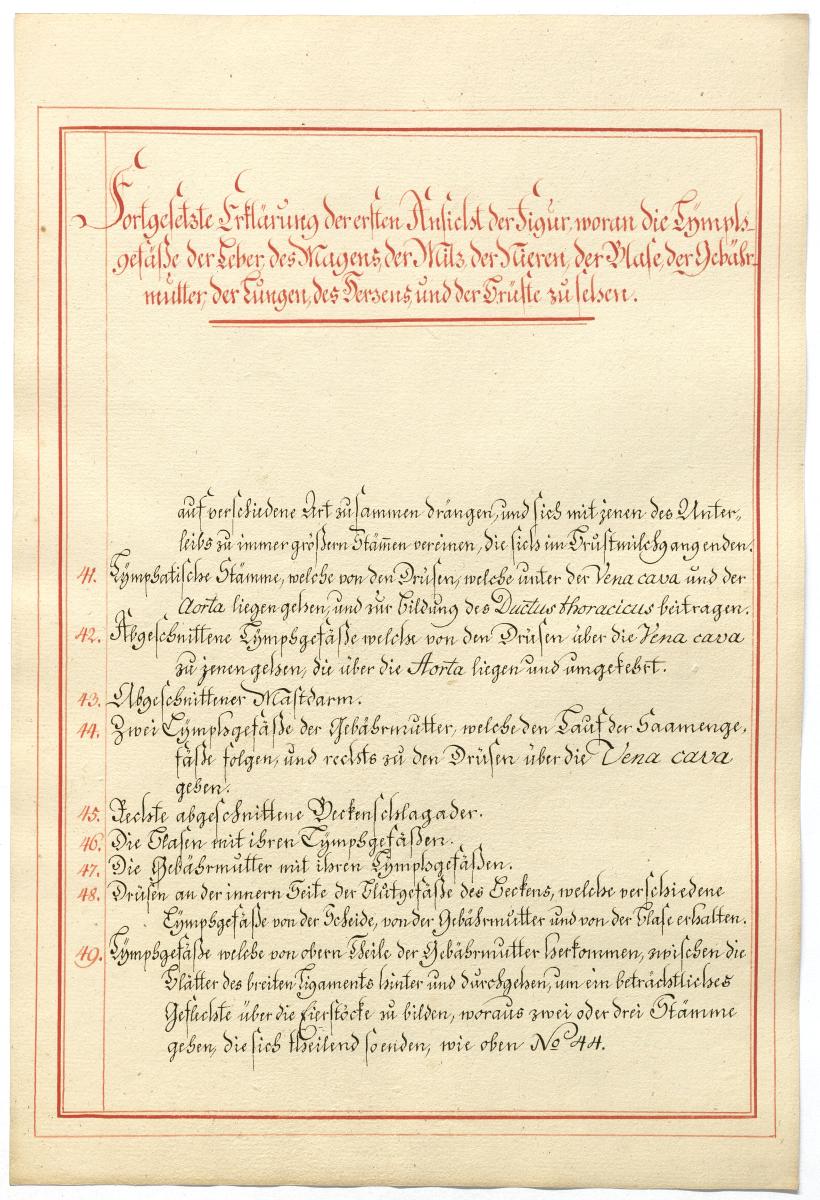 Fortgesetzte Erklärung der ersten Ansicht der Figur, woran die Lymph-
gefäße der Leber, des Magens, der Milz, der Nieren, der Blase, der Gebähr-
mutter, der Lungen, des Herzens, und der Brüste zu sehen.
auf verschiedene Art zusammen drängen, und sich mit jenen des Unter-
leibs zu immer größern Stam̅en vereinen, die sich im Brustmilchgang enden.
41. Lymphatische Stämme, welche von den Drüsen, welche unter der Vena cava und der
Aorta liegen gehen, und zur Bildung des Ductus thoracicus beitragen.
42. Abgeschnittene Lymphgefäße welche von den Drüsen über die Vena cava
zu jenen gehen, die über die Aorta liegen und umgekehrt.
43. Abgeschnittener Mastdarm.
44. Zwei Lymphgefäße der Gebährmutter, welche den Lauf der Saamenge-
fäße folgen, und rechts zu den Drüsen über die Vena cava
gehen.
45. Rechte abgeschnittene Beckenschlagader.
46. Die Blasen mit ihren Lymphgefäßen.
47. Die Gebährmutter mit ihren Lymphgefäßen.
48. Drüsen an der innern Seite der Blutgefäße des Beckens, welche verschiedene
Lymphgefäße von der Scheide, von der Gebährmutter und von der Blase erhalten.
49. Lymphgefäße welche von obern Theile der Gebährmutter herkommen, zwischen die
Blätter des breiten Ligaments hinter und durchgehen, um ein beträchtliches
Geflechte über die Eierstöcke zu bilden, woraus zwei oder drei Stämme
gehen, die sich theilend so enden, wie oben No 44.